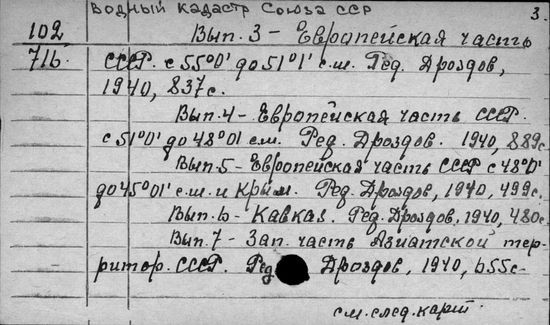 Водный кадастр Союза ССР
3.
102
716.
Вып. 3 - Европейская часть
СССР. с 55°0' до 51°01' с.ш. Ред. Дроздов,
1940, 837с.
Вып. 4 - Европейская часть СССР.
с 51°0' до 48°01 с.ш. Ред. Дроздов. 1940, 889с.
Вып. 5 - Европейская часть СССР с 48°0'
до 45°01' с.ш. и Крым. Ред. Дроздов, 1940, 499с.
Вып. 6 - Кавказ. Ред. Дроздов, 1940, 480с.
Вып. 7 - Зап. часть Азиатской тер-
ритор. СССР. Ред Дроздов, 1940, 655с-
см. след. карт